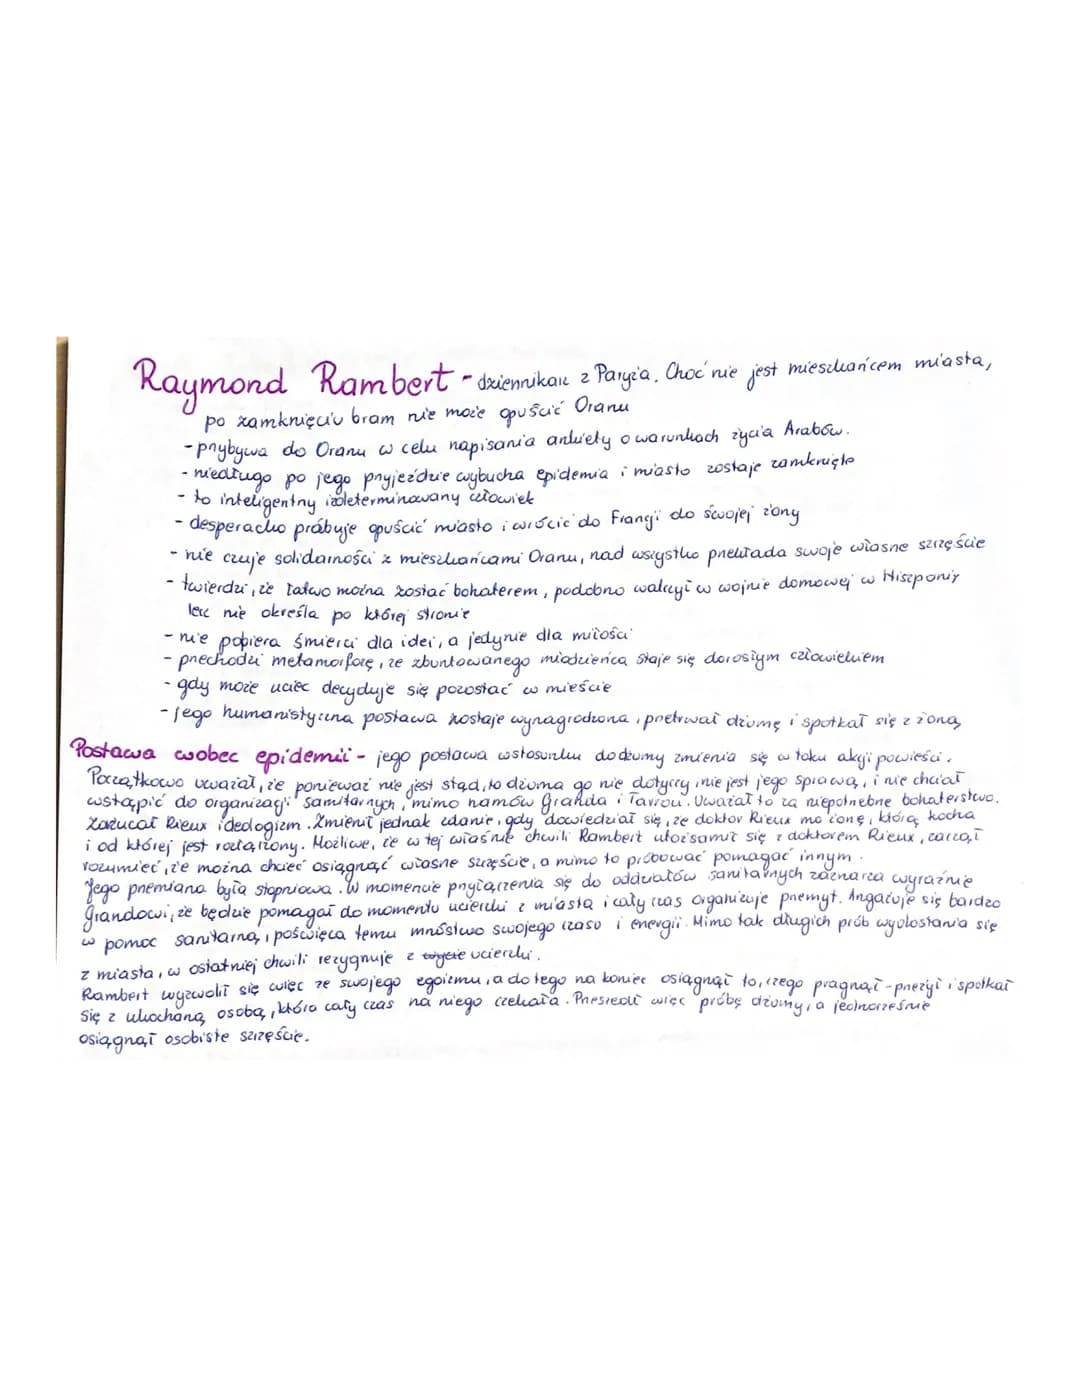 Raymond Rambert - dziennikarz z Paryża. Choć nie jest mieszkańcem miasta,
po zamknięciu bram nie może opuścić Oranu
- przybywa do Oranu w celu napisania ankiety o warunkach życia Arabów.
- niedługo po jego przyjeździe wybucha epidemia i miasto zostaje zamknięte
- to inteligentny i zdeterminowany człowiek
- desperacko próbuje opuścić miasto i wrócić do Francji do swojej żony
- nie czuje solidarności z mieszkańcami Oranu, nad wszystko przekłada swoje własne szczęście
- twierdzi, że łatwo można zostać bohaterem, podobno walczył w wojnie domowej w Hiszponir
lecz nie określa po której stronie
- nie popiera śmierci dla idei, a jedynie dla miłości
- przechodzi metamorfozę, ze zbuntowanego młodzieńca staje się dorosłym człowiekiem
- gdy może uciec decyduje się pozostać w mieście
- jego humanistyczna postawa zostaje wynagrodzona, przetrwał dżumę i spotkał się z żoną
Postawa wobec epidemii - jego postawa w stosunku do dżumy zmienia się w toku akcji powieści.
Początkowo uważał, że ponieważ nie jest stąd, to dżuma go nie dotyczy, nie jest jego sprawą, i nie chciał
wstąpić do organizacji sanitarnych, mimo namów Granda i Tarrou. Uważał to za niepotrzebne bohaterstwo.
Zarzucał Rieux ideologizm. Zmienił jednak zdanie, gdy dowiedział się, że doktor Rieux ma żonę, którą kocha
i od której jest rozłączony. Możliwe, że w tej właśnie chwili Rambert utożsamił się z doktorem Rieux, zaczął
rozumieć, że można chcieć osiągnąć własne szczęście, a mimo to próbować pomagać innym.
Jego przemiana była stopniowa. W momencie przyłączenia się do oddziałów sanitarnych zaznacza wyraźnie
Grandowi, że będzie pomagał do momentu ucieczki z miasta i cały czas organizuje przemyt. Angażuje się bardzo
w pomoc sanitarną, poświęca temu mnóstwo swojego czasu i energii. Mimo tak długich prób wydostania się
z miasta, w ostatniej chwili rezygnuje z ucieczki.
Rambert wyzwolił się więc ze swojego egoizmu, a do tego na koniec osiągnął to, czego pragnął - przeżył i spotkał
się z ukochaną osobą, która cały czas na niego czekała. Przeszedł więc próbę dżumy, a jednocześnie
osiągnął osobiste szczęście.